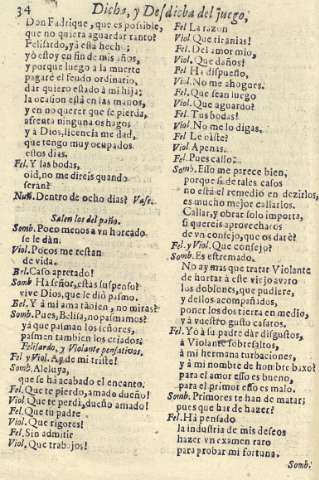 34
Dicha, y Desdicha del juego,
Don Fadrique, que es possible,
que no quiera aguardar tanto?
Felisardo, yà está hecho;
yò estoy en fin de mis años,
y porque luego a la muerte
pagaré el feudo ordinario,
dar quiero estado à mi hija;
la ocasion está en las manos,
y en no querer que se pierda,
afrenta ninguna os hagos
y à Dios, licencia me dad,
que tengo muy ocupados
estos dias.
Fel. Y las bodas,
oid, no me direis quando
seran?
Dentro de ocho dias? Vase.
Salen los del paño.
Somb. Poco menos a vn horcado
se le dàn.
Viol. Que tiempo me restan
de vida.
Bel. Caso apretado!
Somb. Ha señor, estàs suspenso?
vive Dios, que le diò pasmo.
Bel. Y à mi ama tābien, no miras?
Somb. Pues, Belisa, no pasmamos?
yà que pasman los señores,
pasmen tambien los criados.
Felisardo, y Violante pensativos.
Fel y Viol. Ay de mi triste!
Somb. Aleluya,
que se hà acabado el encanto.
Fel. Que te pierdo, amado dueño!
Viol. Que te perdà, dueño amado!
Fel. Que tu padre
Viol. Que rigores!
Fel. Sin admitir
Viol. Que trabajos!
Fel. La razon
Viol. Que tiranias!
Fel. Del amor mio,
Viol. Que daños!
Fel Ha dispuesto,
Viol. No me ahogues.
Fel. Que sean luego
Viol. Que aguardo?
Fel. Tus bodas!
Viol. No me lo digas.
Fel. Le oìste?
Viol. Apenas.
Fel. Pues callo.
Somb. Esso me parece bien,
porque si de tales casos
no està el remedio en dezirlos,
es mucho mejor callarlos.
Callar, y obrar solo importa,
si quereis aprovecharos
de vn consejo, que os darè?
Fel. y Viol. Que consejo?
Somb. Es estremado.
No ay mas que tratar Violante
de hurtar à este viejo avaro
los doblones, que pudiere,
y de llos acompañados,
poner los dos tierra en medio,
y à vuestro gusto casaros.
Fel. Yò à tu padre dàr disgustos,
à Violante sobresaltos,
à mi hermana turbaciones,
y à mi nombre de hombre baxo?
para el amor esso es bueno,
para el primor esso es malo.
Somb. Primores te han de matar;
pues que has de hazer?
Fel. Hà pensado
la industria de mis deseos
hazer vn examen raro
para probar mi fortuna.
Somb.